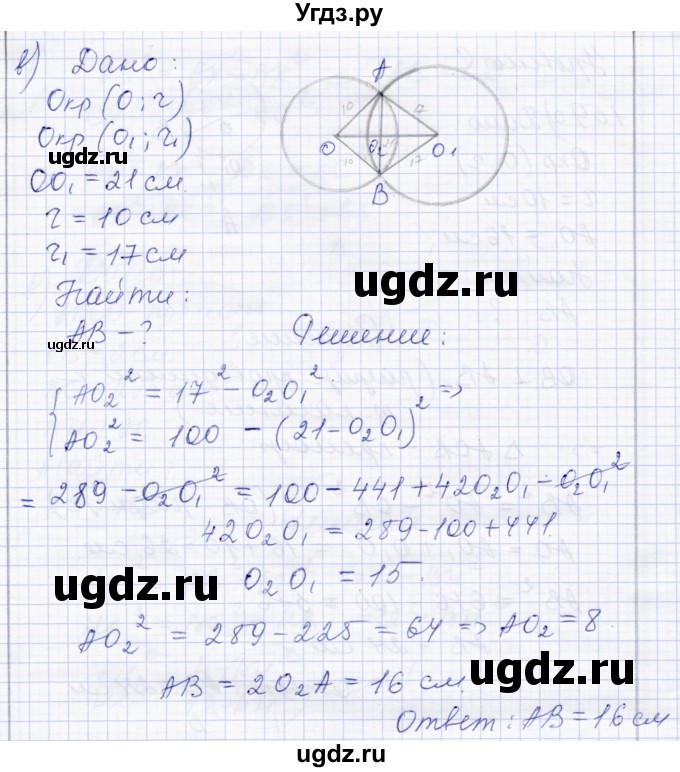 Угдз.ру
в) Дано:
Окр (O; r)
Окр (O₁; r₁)
OO₁ = 21 см.
r = 10 см
r₁ = 17 см
Найти:
AB - ?
A
10
17
O
O₂
O1
10
17
B
ugdz.ru
ugdz.ru
ugdz.ru
Решение:
AO₂² = 17² - O₂O₁² =>
AO₂² = 100 - (21 - O₂O₁)²
= 289 - O₂O₁² = 100 - 441 + 42O₂O₁ - O₂O₁²
42O₂O₁ = 289 - 100 + 441.
O₂O₁ = 15.
ugdz.ru
ugdz.ru
AO₂² = 289 - 225 = 64 => AO₂ = 8.
AB = 2O₂A = 16 см.
ugdz.ru
Ответ: AB = 16 см
ugdz.ru